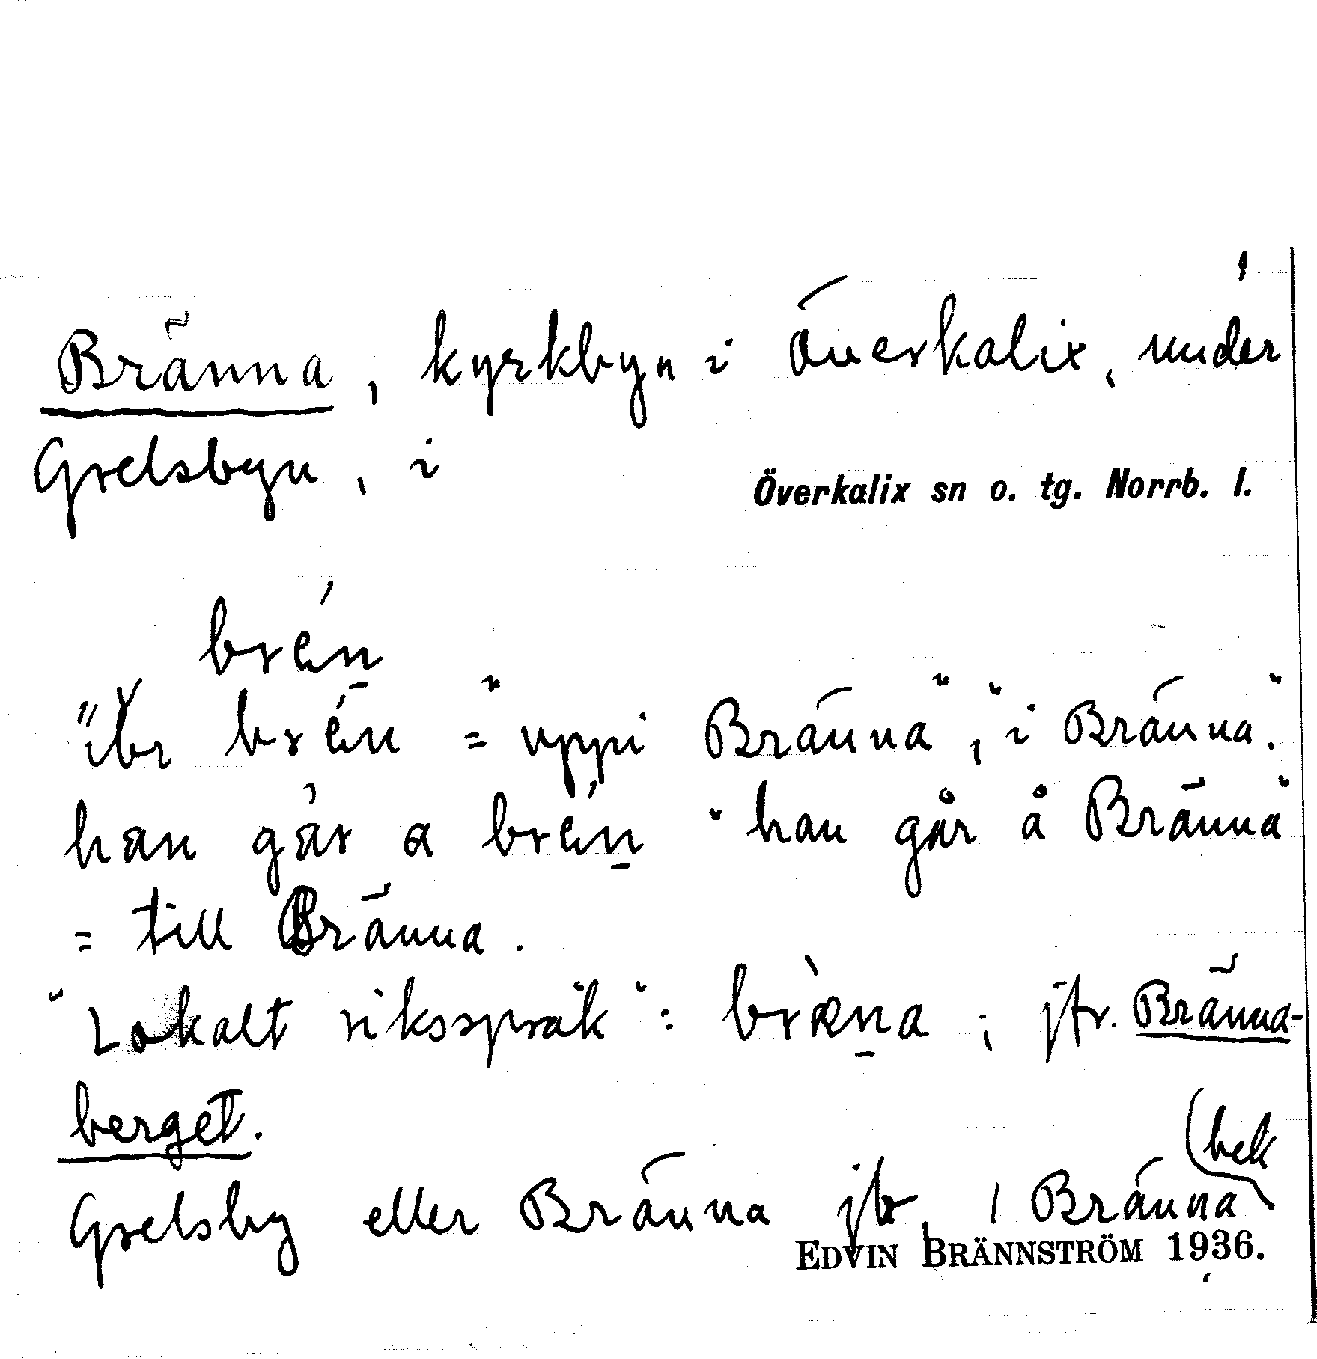 Bränna, kyrkbyn i Överkalix, under
Grelsbyn, i
Överkalix sn o. tg. Norrb. l.
brén̲
brén = "uppi Bränna", "i Bränna".
han går a brén̲ "han går å Bränna"
= till Bränna.
"Lokalt riksspråk": bræ̀n̲a; jfr. Bränna-
berget.
(bek
Grelsby eller Bränna jb, 1 Bränna
EDVIN BRÄNNSTRÖM 1936.